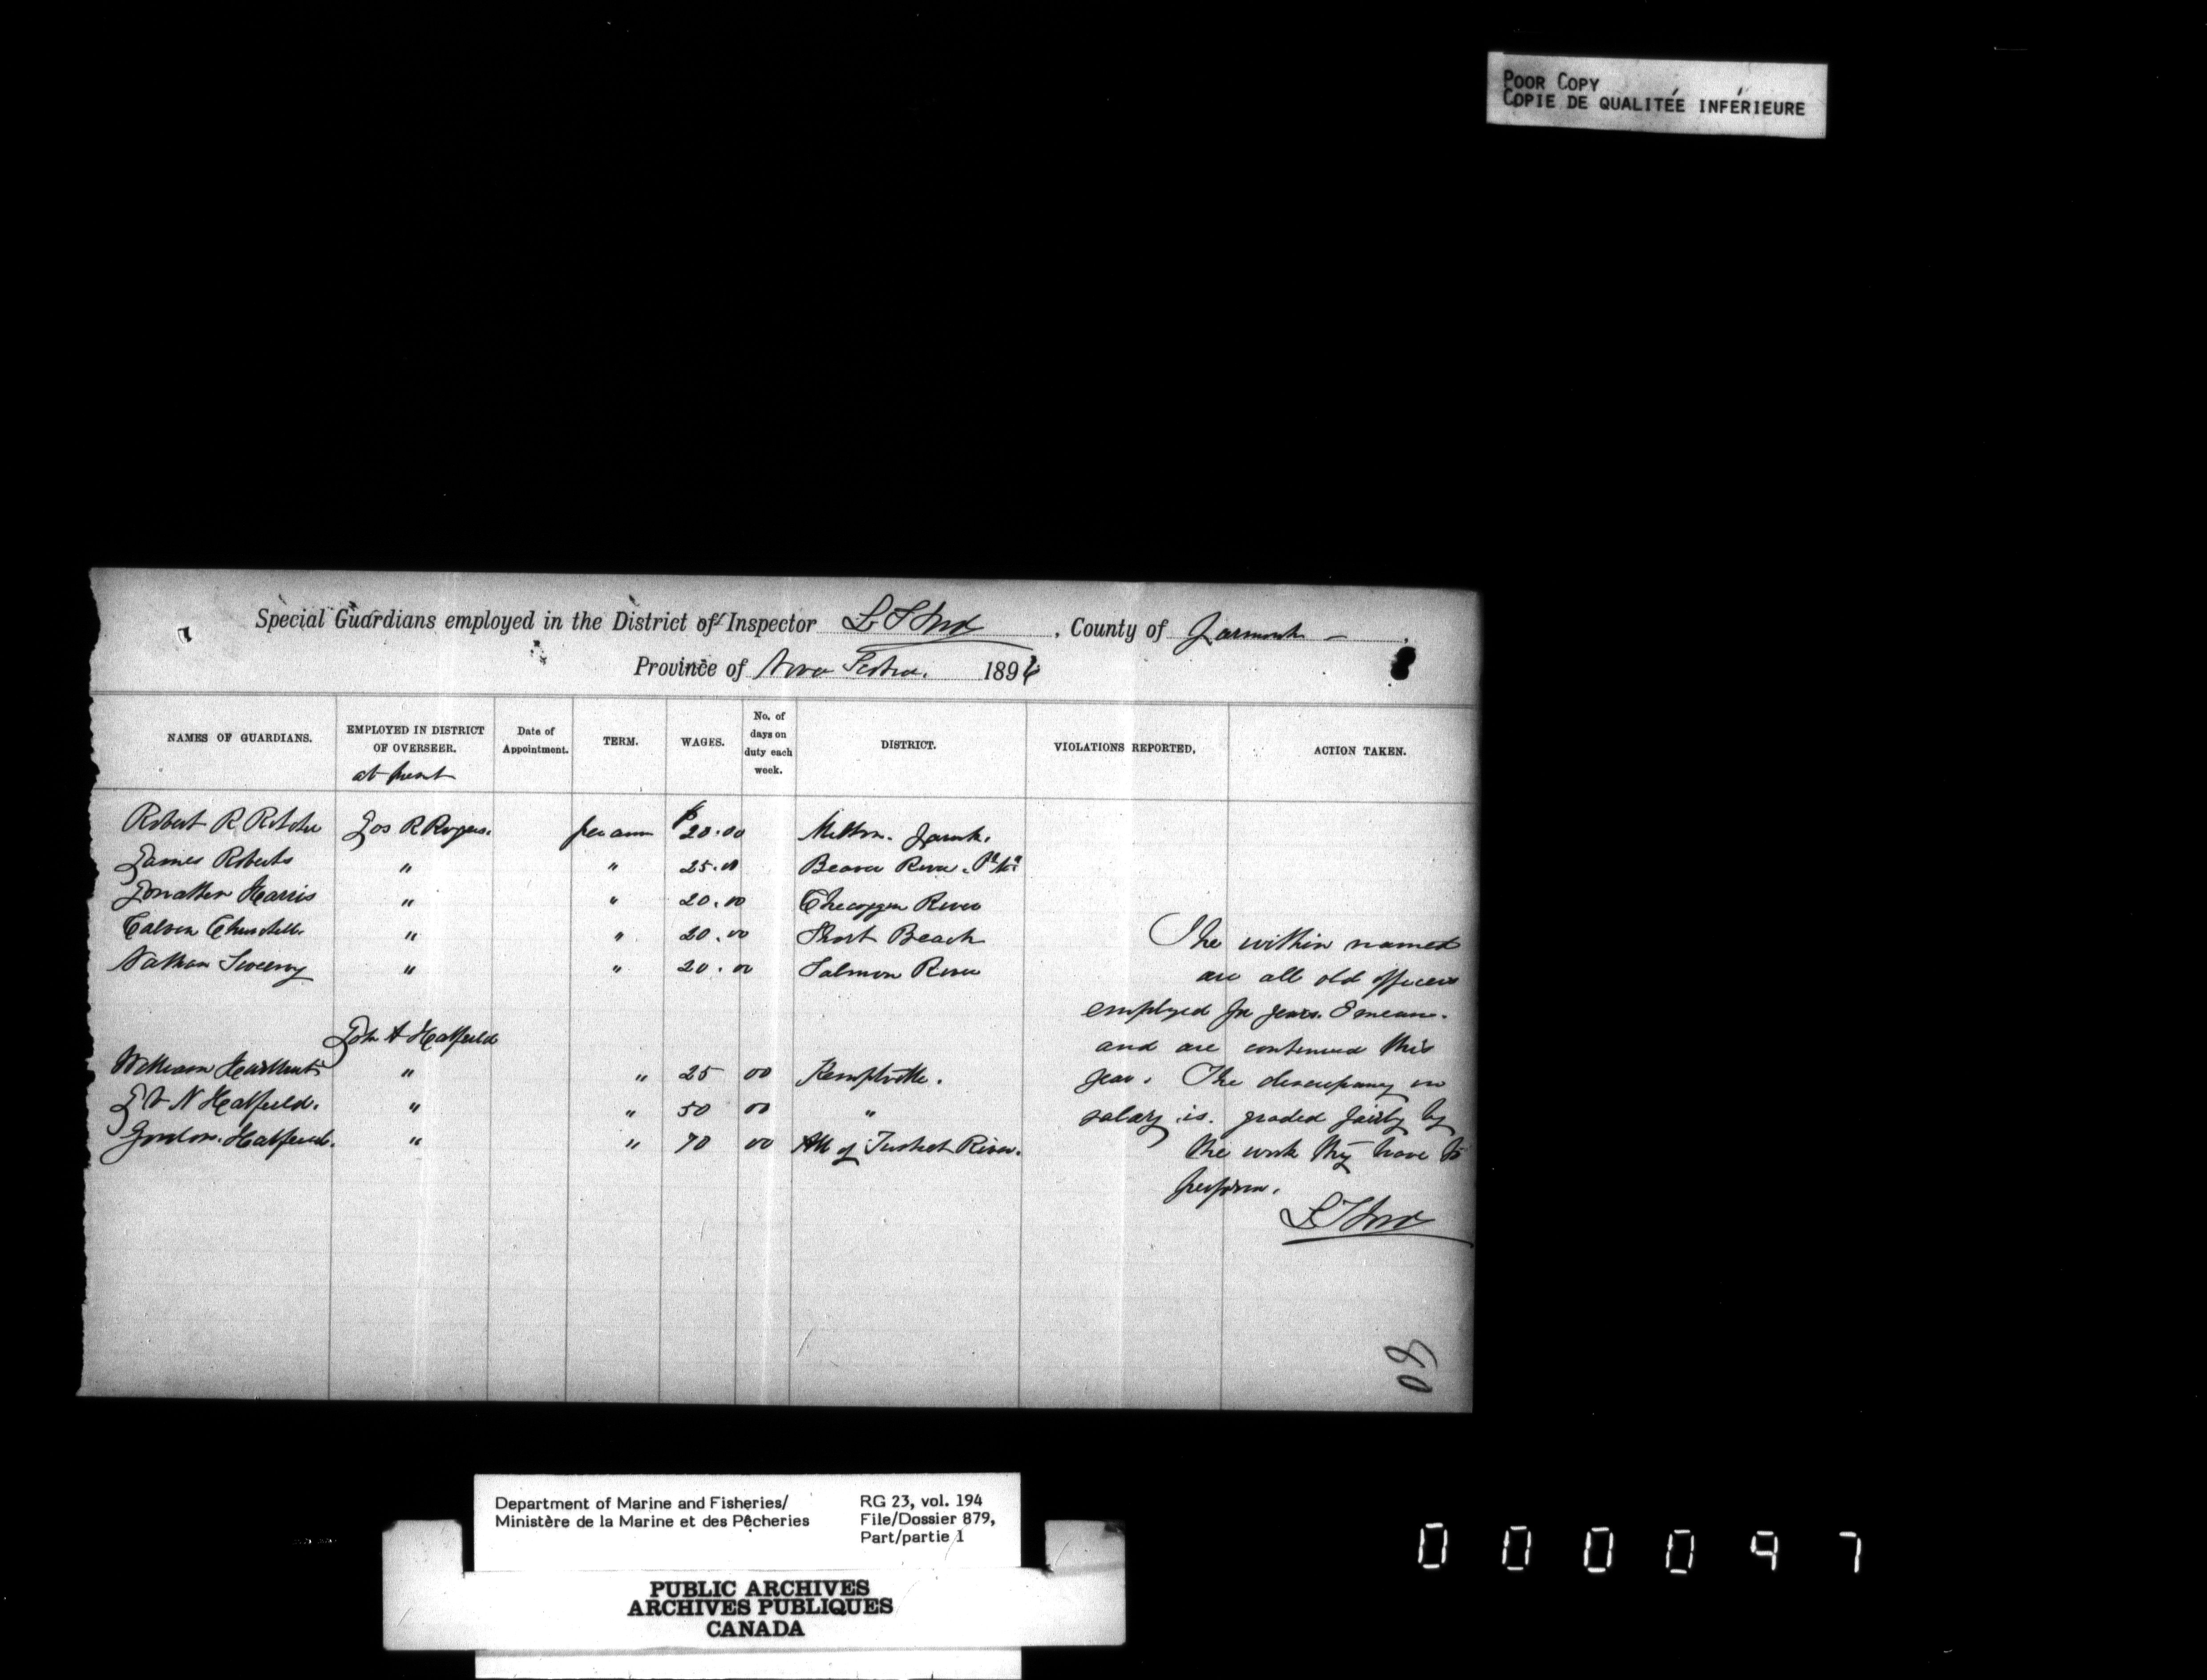 POOR COPY
COPIE DE QUALITÉE INFÉRIEURE
Special Guardians employed in the District of Inspector L S Ford, County of Yarmouth.
Province of Nova Scotia. 1896
NAMES OF GUARDIANS. EMPLOYED IN DISTRICT OF OVERSEER. at present Date of Appointment. TERM. WAGES. No. of days on duty each week. DISTRICT. VIOLATIONS REPORTED. ACTION TAKEN.
Robert R Ritchie Jos R Rogers. per ann $20.00 Milton. Yarmth.
James Roberts " " 25.00 Beaver River
Jonathan Harris " " 20.00 Checoggin River
Calvin Churchill " " 20.00 Short Beach
Nathan Sweeny " " 20.00 Salmon River
John A Hatfield
William " " 25 00 Kemptville.
N Hatfield. " " 50 00 "
Gordon Hatfield. " " 70 00 All of Tusket River.
The within named
are all old officers
employed for years. I mean.
and are continued this
year. The discrepancy in
salary is graded fairly by
the work they have to
perform.
L S Ford
60
Department of Marine and Fisheries/
Ministère de la Marine et des Pêcheries
RG 23, vol. 194
File/Dossier 879,
Part/partie 1
PUBLIC ARCHIVES
ARCHIVES PUBLIQUES
CANADA
000097